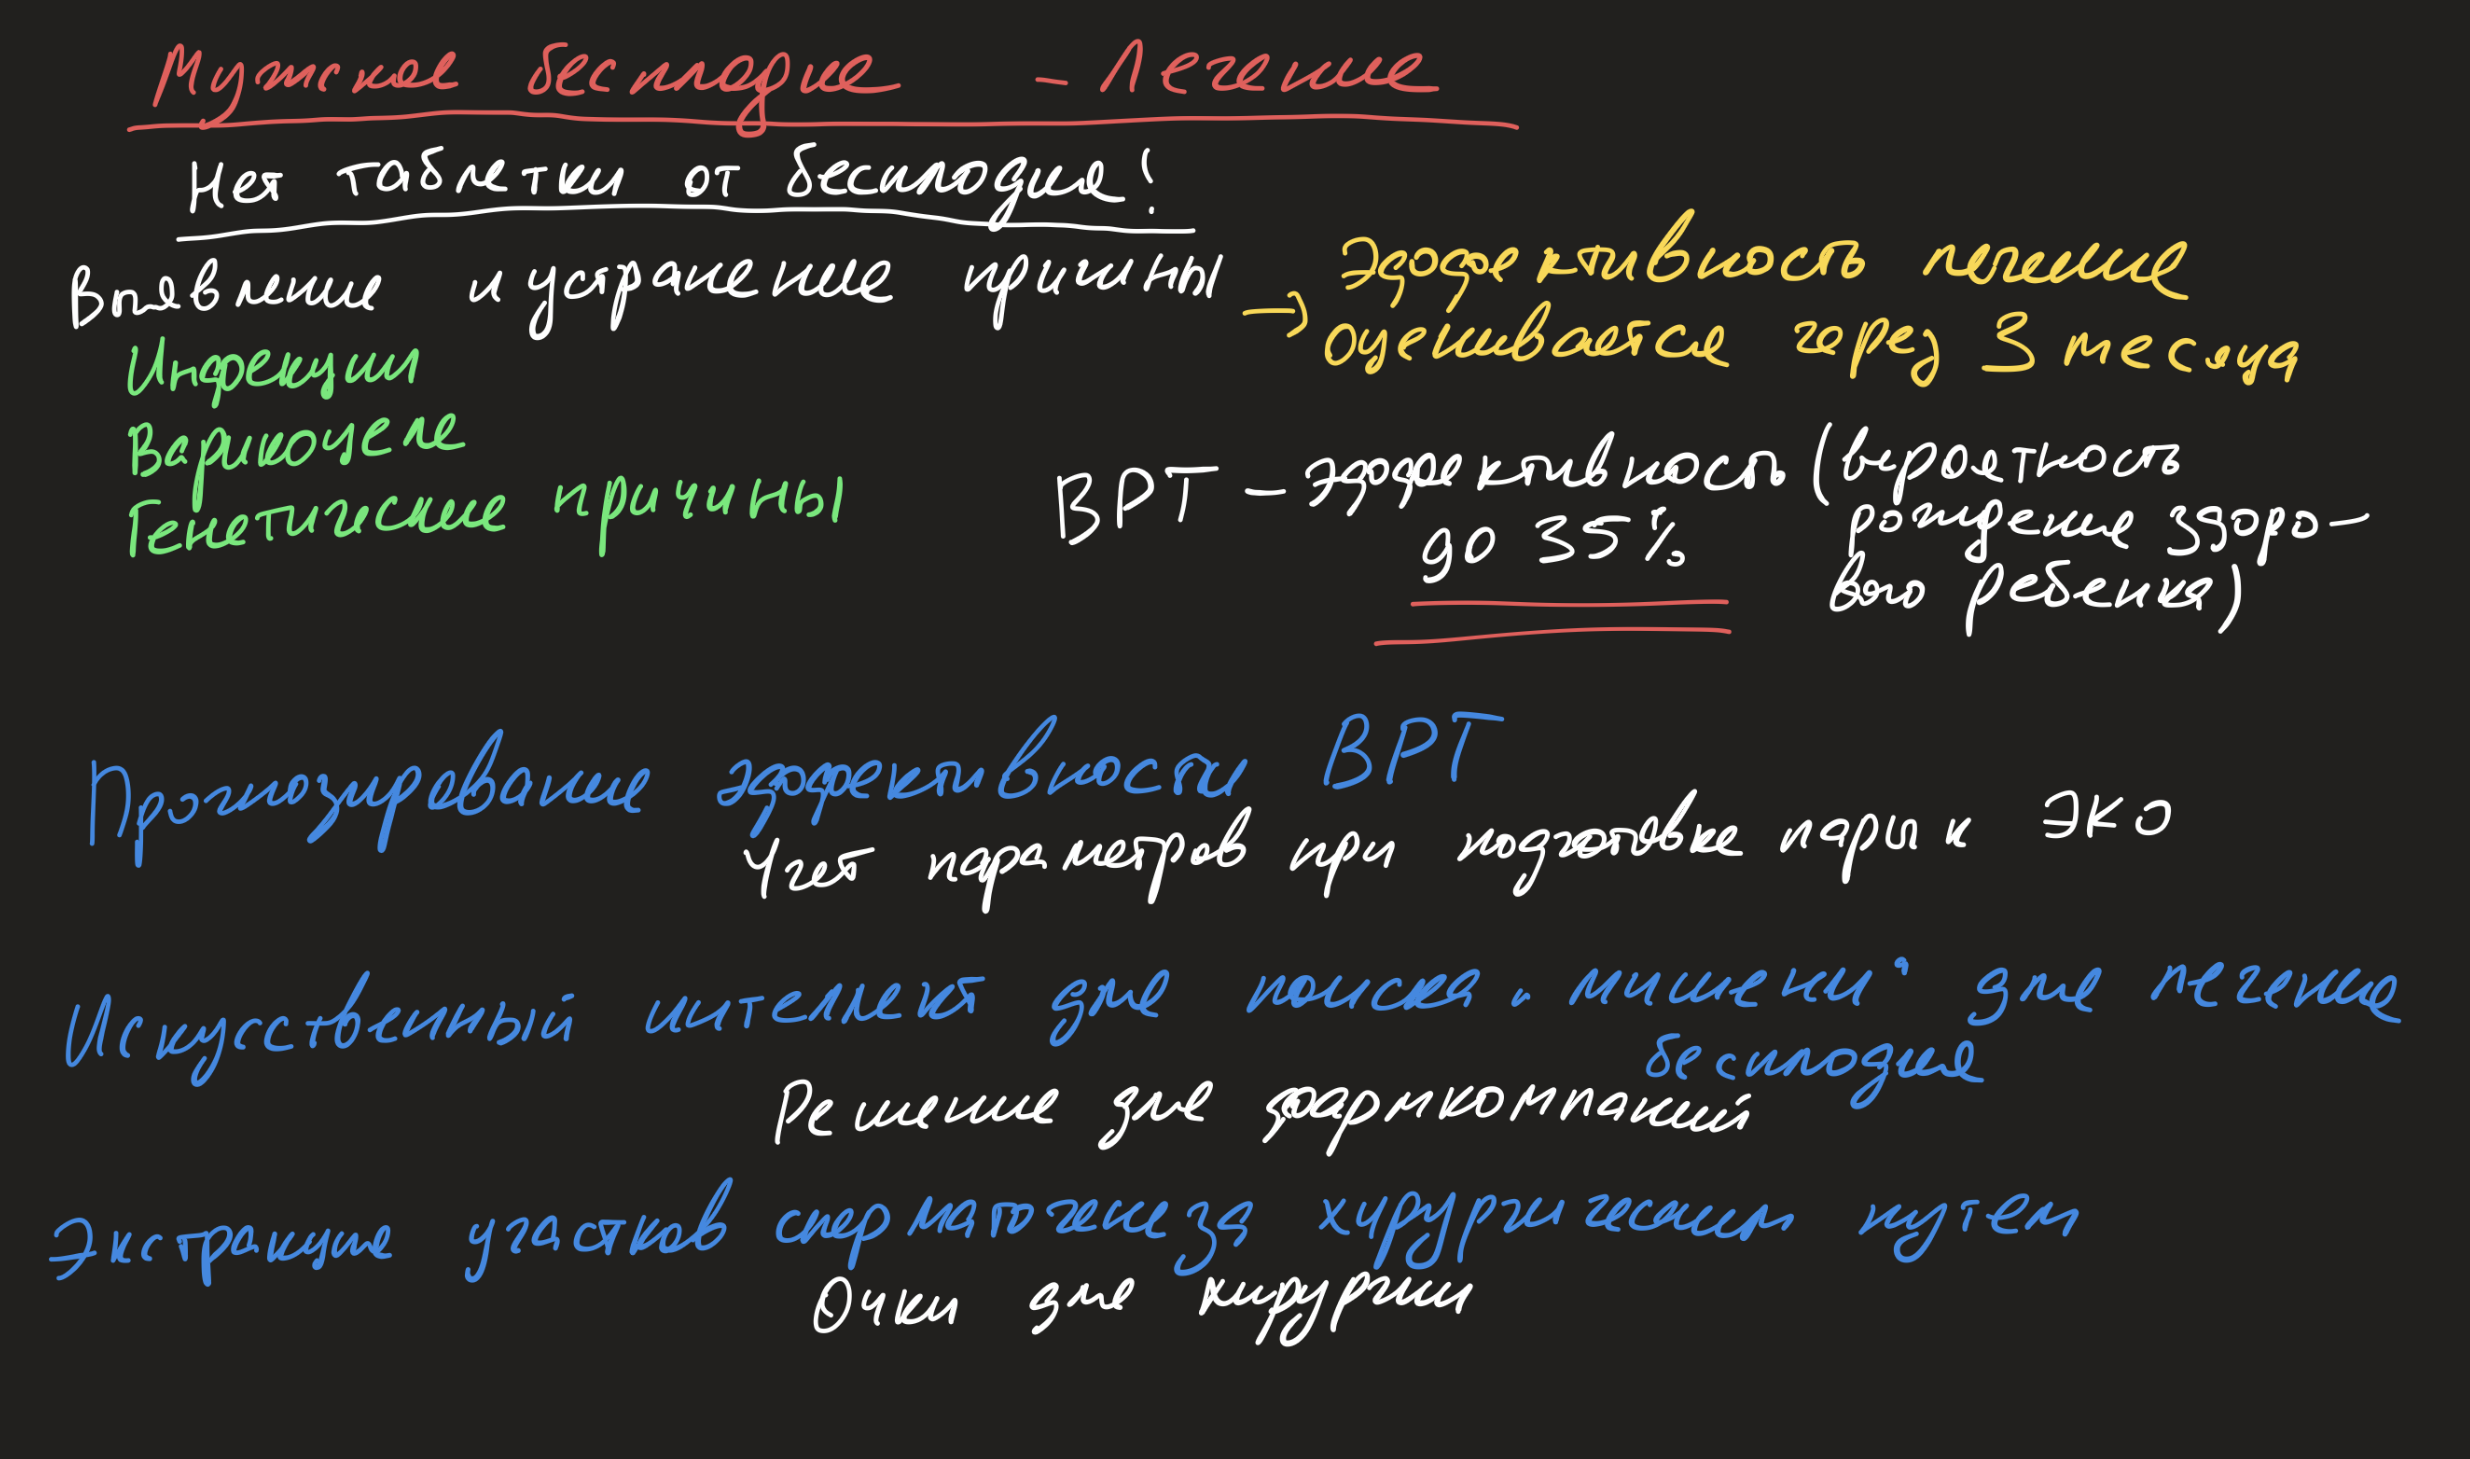 Мужское бесплодие - Лечение
Нет таблетки от бесплодия!
Выявление и устранение причины
→ Эффективность лечения
оценивается через 3 месяца
Инфекции
Варикоцеле
Генетические причины
ВРТ - эффективность (вероятность
до 35% рождения здоро-
вого ребенка)
Прогнозирование эффективности ВРТ
Учет параметров при подготовке пары к ЭКО
Искусственный интеллект для поиска "мишени" для лечения
бесплодия
Решение для фармкомпаний
Экстракция участков сперматогенеза хирургическим путем
Очки для хирургии